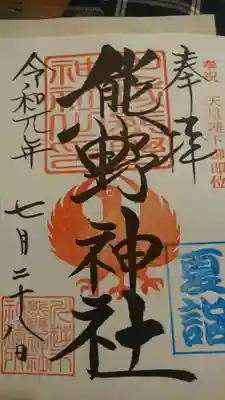 奉祝 天皇陛下御即位
奉拝
夏詣
熊野神社
令和元年
七月二十八日